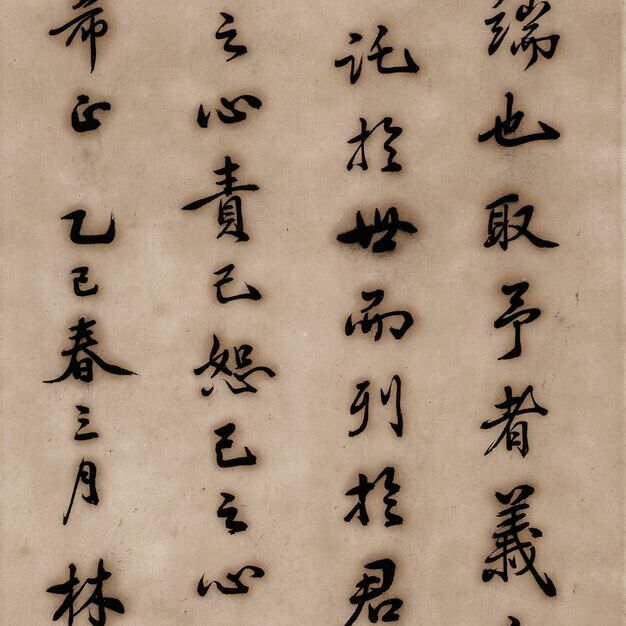 端也取予者義
託於世而列於君
之心責己恕己之心
希正 乙巳春三月 林